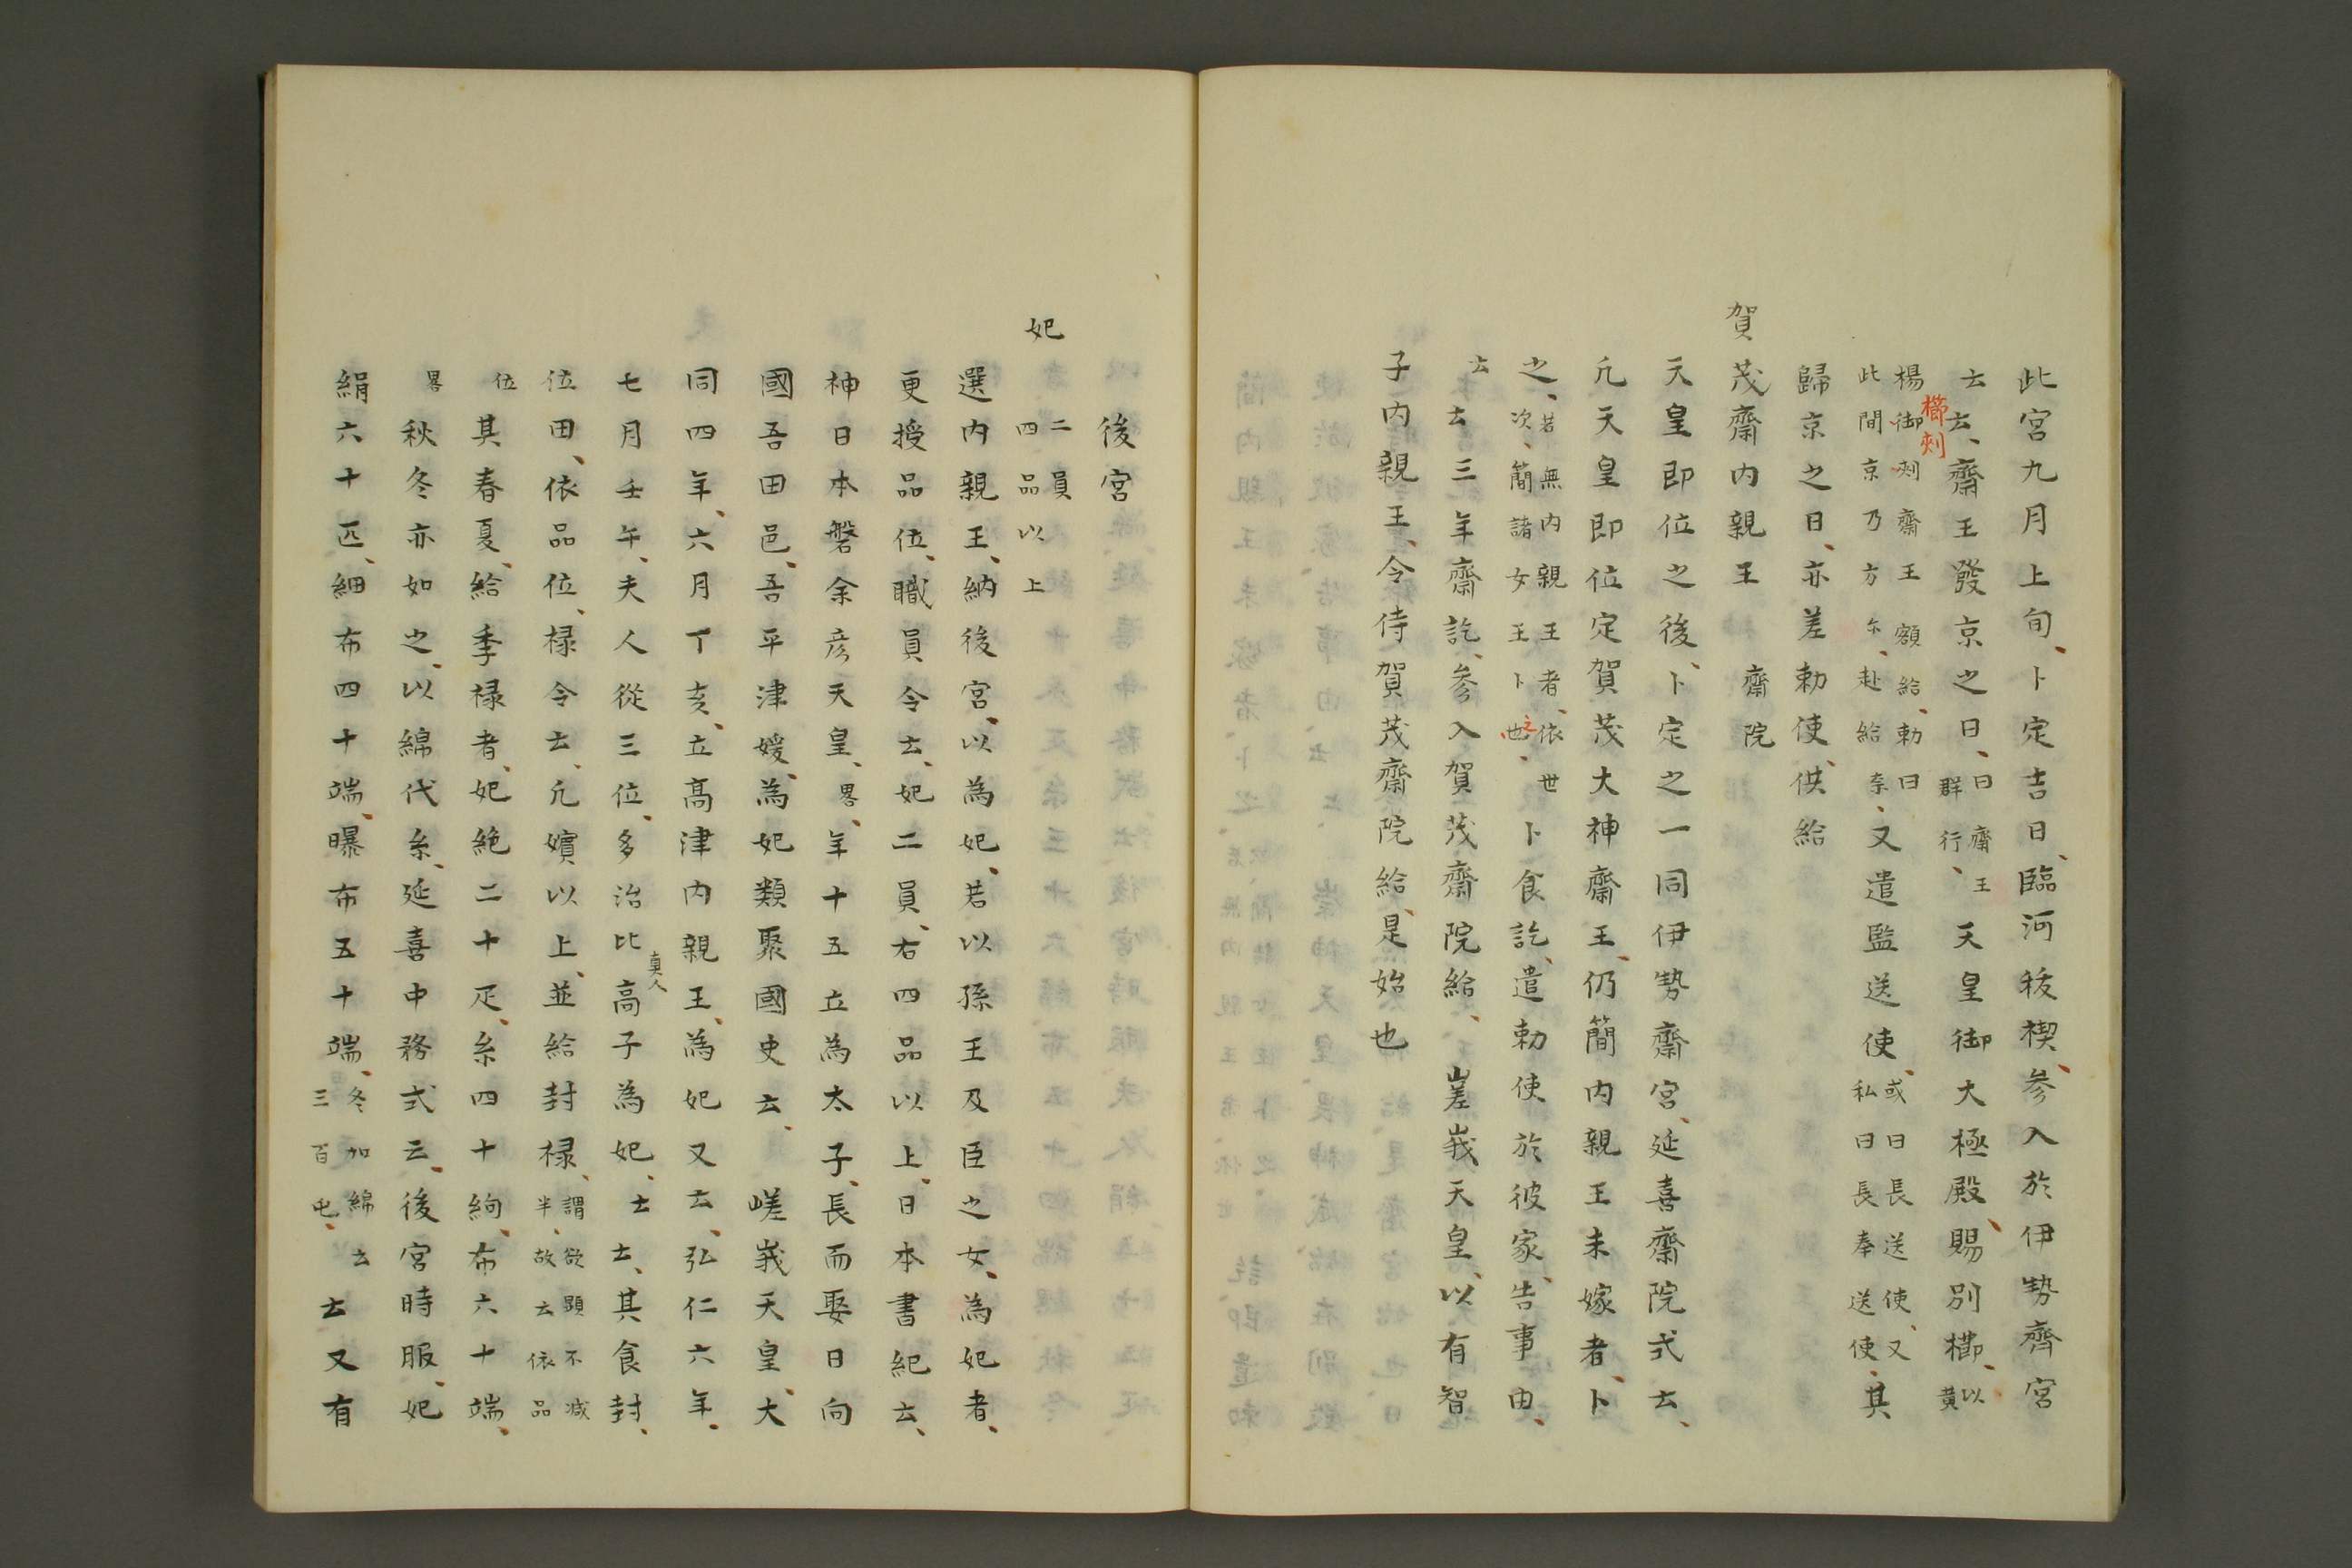 此宮九月上旬、卜定吉日、臨河祓禊、参入於伊勢齊宮
云云、齋王發京之日、曰齋王群行、天皇御大極殿、賜別櫛、以黄
楊御刾齋王額給、勅曰此間京乃方尓、赴給奈、又遣監送使、或曰長送使、又私曰長奉送使、其
櫛刾
歸京之日、亦差勅使、供給
賀茂齋内親王 齋院
天皇即位之後、卜定之一同伊勢齋宮、延喜齋院式云、
凢天皇即位定賀茂大神齋王、仍簡内親王未嫁者、卜
之、若無内親王者、依世次、簡諸女王卜也、之卜食訖、遣勅使於彼家、告事由、
云云三年齋訖、参入賀茂齋院給、嵳峩天皇、以有智
子内親王、令侍賀茂齋院給、是始也
後宮
妃 二員四品以上
選内親王、納後宮、以為妃、若以孫王及臣之女、為妃者、
更授品位、職員令云、妃二員、右四品以上、日本書紀云、
神日本磐余彦天皇、畧、年十五立為太子、長而娶日向
國吾田邑、吾平津媛、為妃類聚國史云、嵯峩天皇、大
同四年、六月丁亥、立髙津内親王、為妃又云、弘仁六年、
七月壬午、夫人從三位、多治比高子為妃、云云、其食封、
真人
位田、依品位、禄令云、凢嬪以上、並給封禄、謂欲顕不减半、故云依品
位其春夏、給季禄者、妃絁二十疋、糸四十絇、布六十端、
畧秋冬亦如之、以綿代糸、延喜中務式云、後宮時服、妃
絹六十匹、細布四十端、曝布五十端、冬加綿三百屯、云云又有